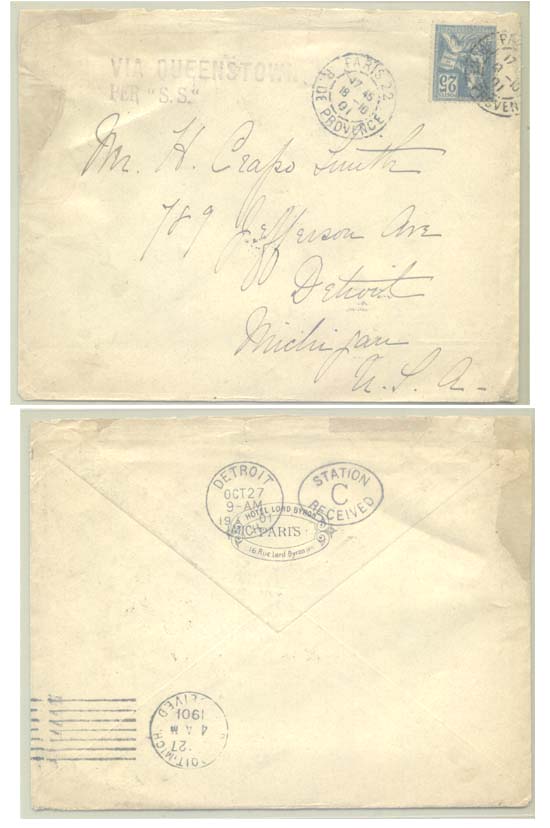 VIA QUEENSTOWN.
PER "S.S."
PARIS 22
17 45
18 -10
01
R. DE PROVENCE
25
Mr. H. Crapo Smith
789 Jefferson Ave
Detroit
Michigan
U. S. A -
DETROIT
OCT 27
9-AM
19 01
MICH.
STATION
C
RECEIVED
HOTEL LORD BYRON
PARIS
16 Rue Lord Byron
1901
4 AM
27
OIT MICH